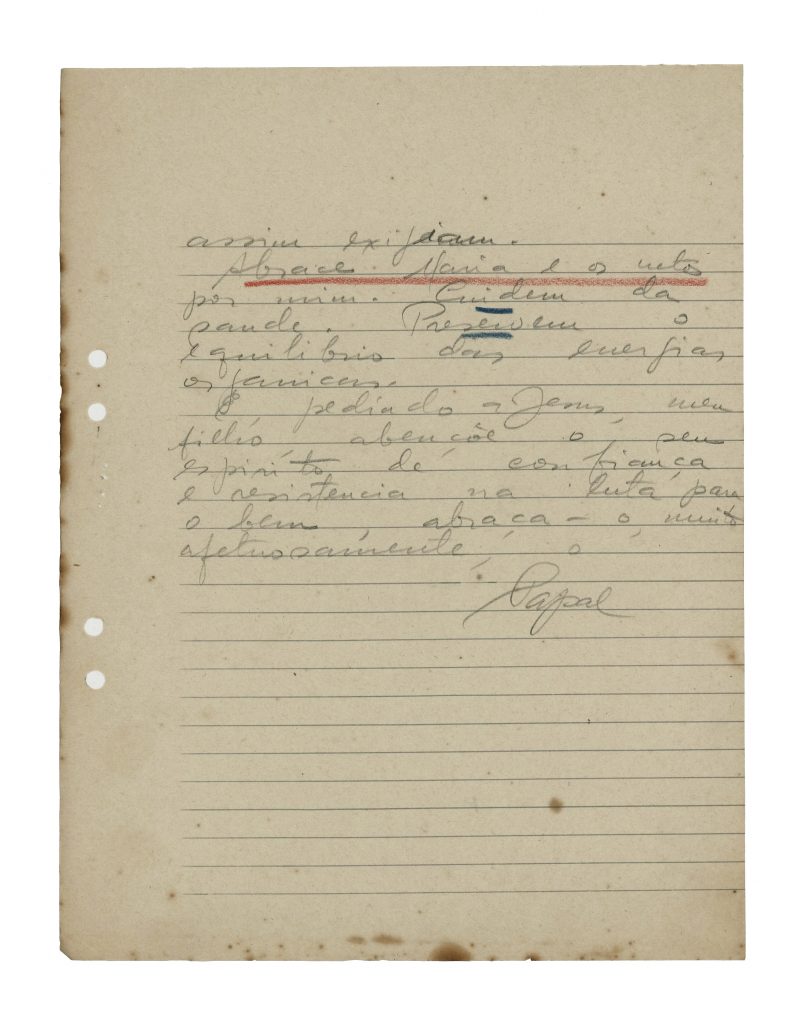 assim exigiam.
Abrace Maria e os netos
por mim. Cuidem da
saude. Preservem o
equilibrio das energias
organicas.
E, pedindo a Jesus, meu
filho, abençôe o seu
espirito de confiança
e resistencia na luta para
o bem, abraça-o, muito
afetuosamente, o
Papal